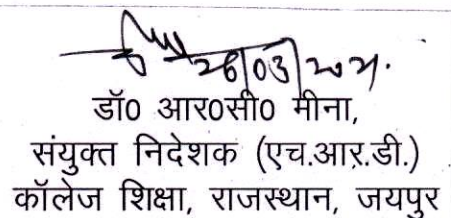 26/03/2021.
डॉ0 आर0सी0 मीना,
संयुक्त निदेशक (एच.आर.डी.)
कॉलेज शिक्षा, राजस्थान, जयपुर